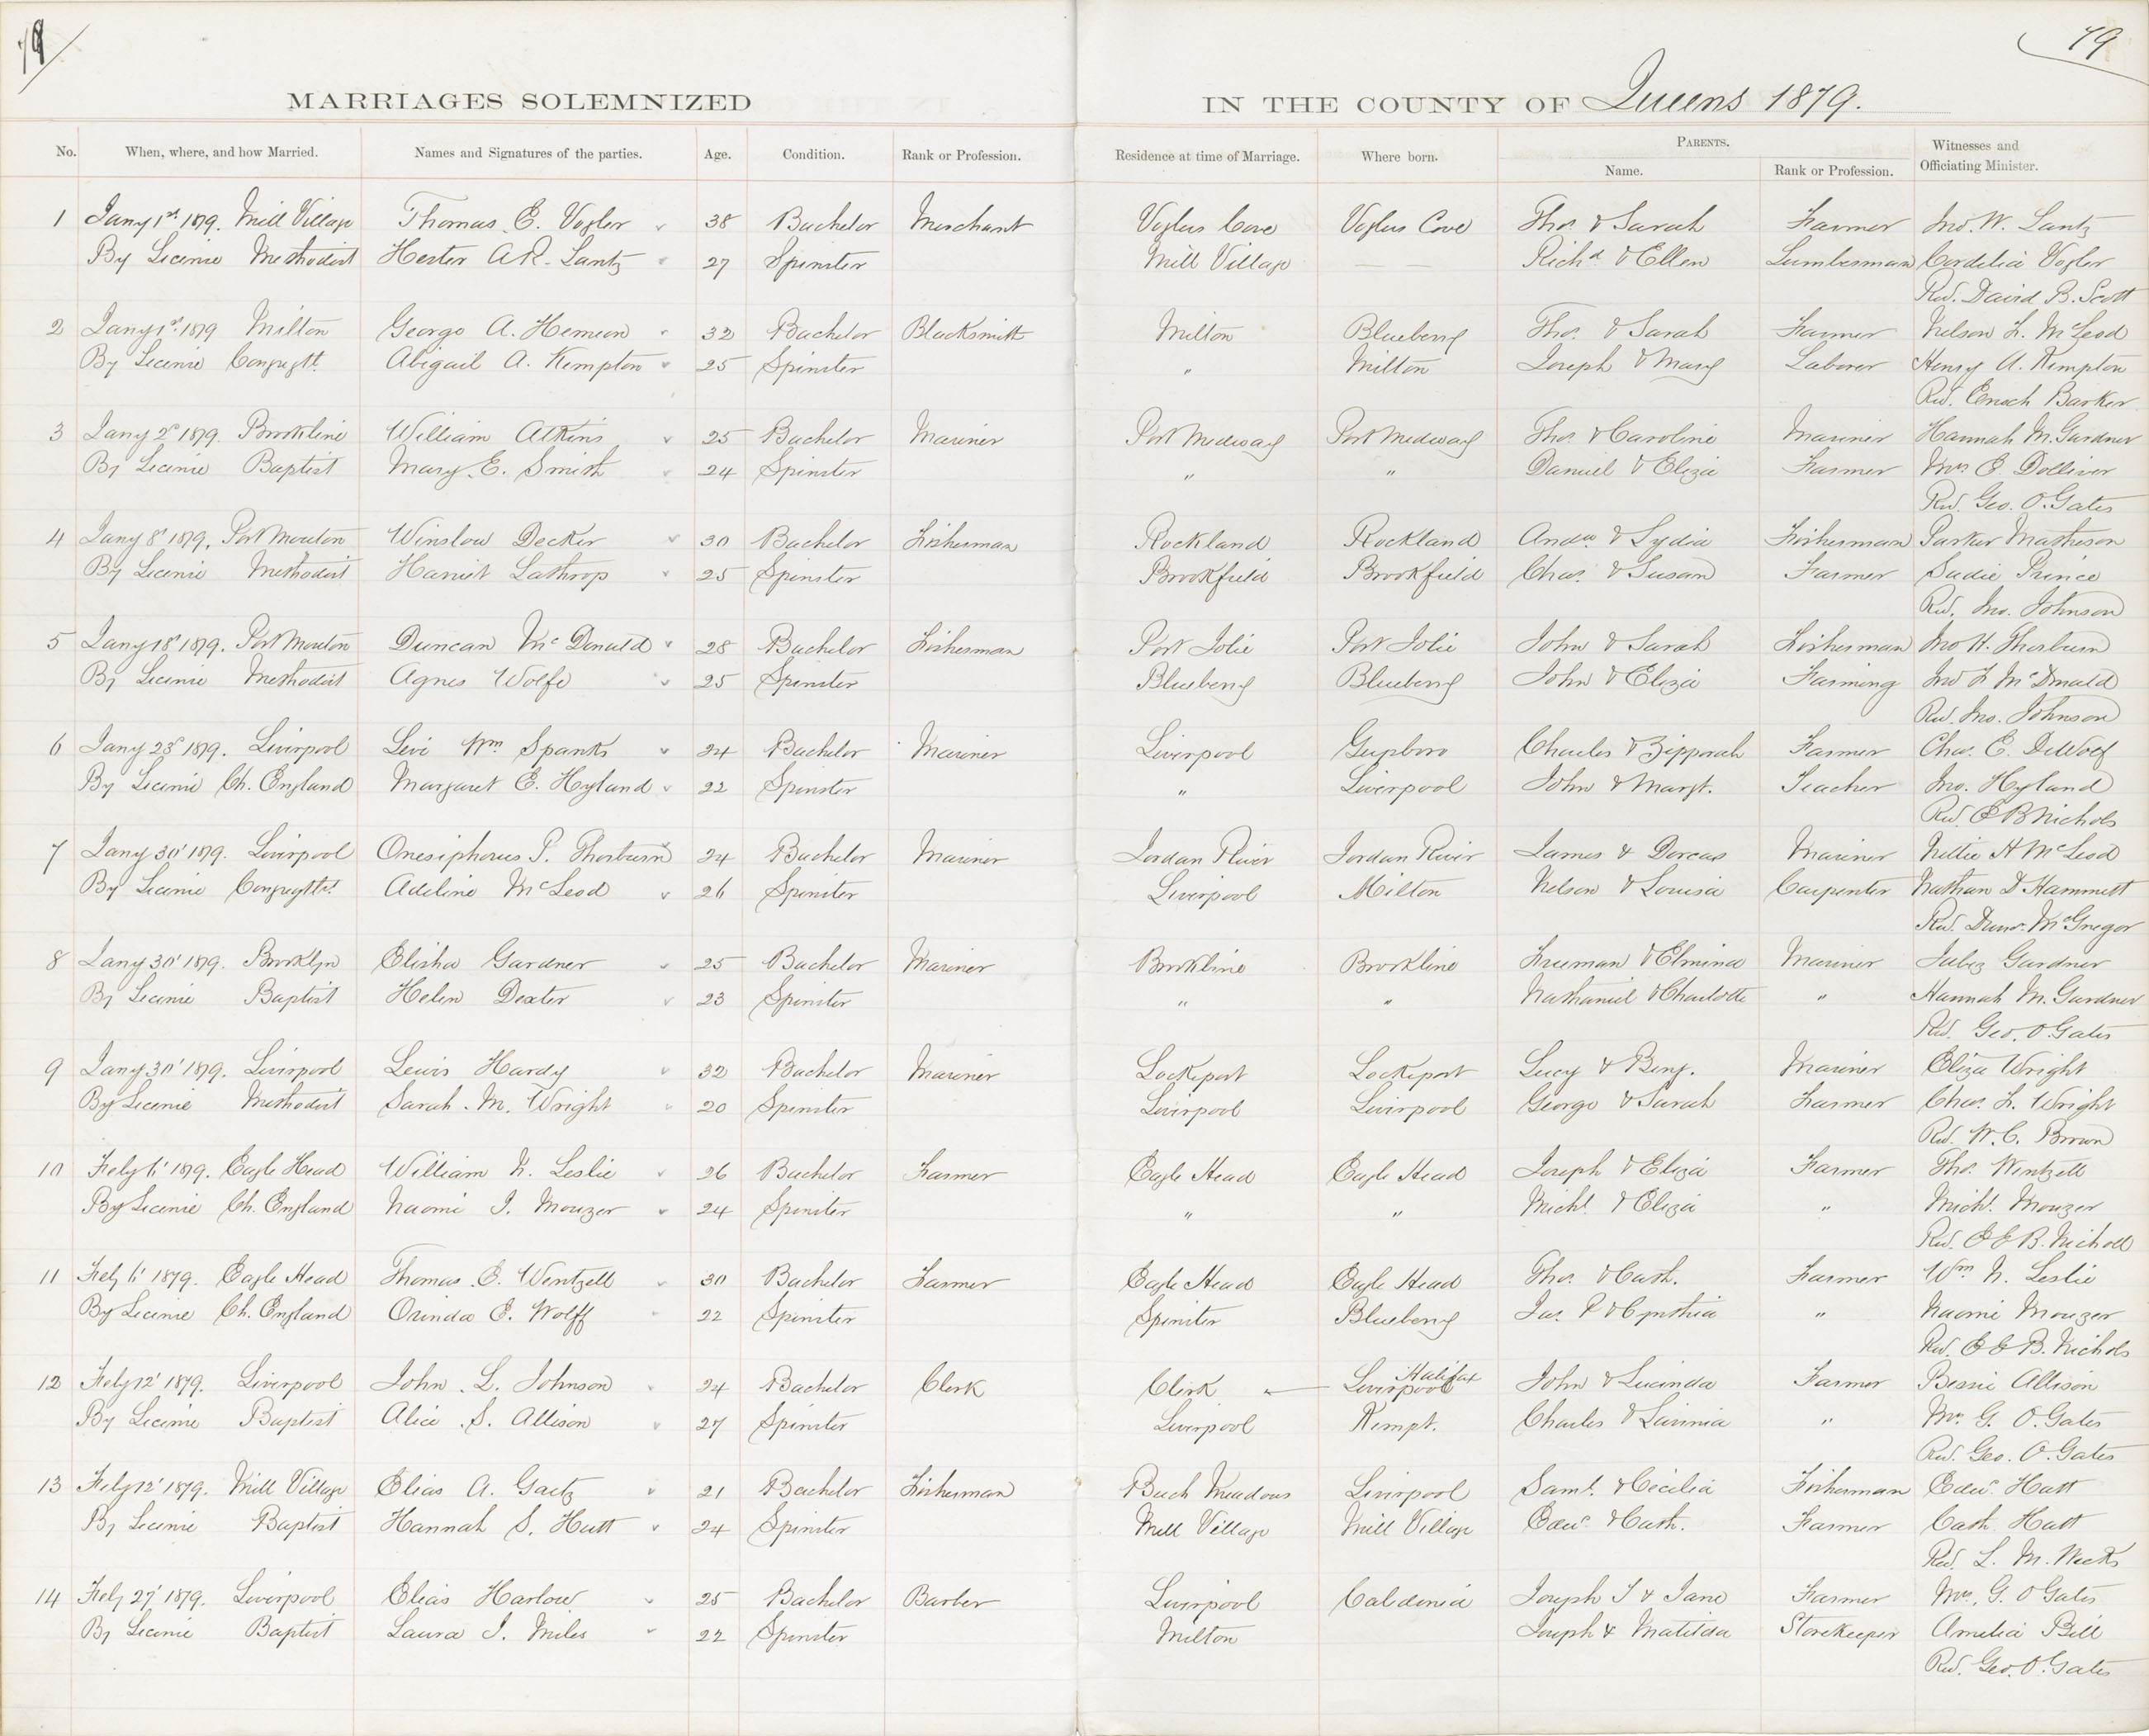 79
79
MARRIAGES SOLEMNIZED IN THE COUNTY OF Queens 1879.
No. When, where, and how Married. Names and Signatures of the parties. Age. Condition. Rank or Profession. Residence at time of Marriage. Where born. PARENTS. Name. Rank or Profession. Witnesses and Officiating Minister.
1 Jany 1st 1879. Mill Village Thomas E. Vogler 38 Bachelor Merchant Voglers Cove Voglers Cove Thos. & Sarah Farmer Jno. W. Lantz
By License Methodist Hester A R. Lantz 27 Spinster Mill Village — — Richd & Ellen Lumberman Cordelia Vogler
Rev. David B. Scott
2 Jany 1st 1879 Milton George A. Hemeon 32 Bachelor Blacksmith Milton Blueberry Thos. & Sarah Farmer Nelson F. McLeod
By License Congregtl. Abigail A. Kempton 25 Spinster " Milton Joseph & Mary Laborer Henry A. Kempton
Rev. Enoch Barker
3 Jany 2d 1879 Brookline William Atkins 25 Bachelor Mariner Port Medway Port Medway Thos. & Caroline Mariner Hannah M. Gardner
By License Baptist Mary E. Smith 24 Spinster " " Daniel & Eliza Farmer Mrs E. Dolliver
Rev. Geo. O. Gates
4 Jany 8' 1879. Port Mouton Winslow Decker 30 Bachelor Fisherman Rockland Rockland Andw & Lydia Fisherman Parker Matheson
By License Methodist Harriet Lathrop 25 Spinster Brookfield Brookfield Chas. & Susan Farmer Sadie Prince
Rev. Jno. Johnson
5 Jany 18' 1879. Port Mouton Duncan McDonald 28 Bachelor Fisherman Port Jolie Port Jolie John & Sarah Fisherman Jno H. Thorburn
By License Methodist Agnes Wolfe 25 Spinster Blueberry Blueberry John & Eliza Farming Jno F McDonald
Rev. Jno. Johnson
6 Jany 23d 1879. Liverpool Levi Wm Spanks 24 Bachelor Mariner Liverpool Guysboro Charles & Zipporah Farmer Chas. E. DeWolf
By License Ch. England Margaret E. Hyland 22 Spinster " Liverpool John & Margt. Teacher Jno. Hyland
Rev. E B Nichols
7 Jany 30' 1879. Liverpool Onesiphorus P. Thorburn 24 Bachelor Mariner Jordan River Jordan River James & Dorcas Mariner Nettie H McLeod
By License Congregtl. Adeline McLeod 26 Spinster Liverpool Milton Nelson & Louisa Carpenter Nathan D Hammett
Rev. Dunc. McGregor
8 Jany 30' 1879. Brooklyn Elisha Gardner 25 Bachelor Mariner Brookline Brookline Freeman & Elmina Mariner Jabez Gardner
By License Baptist Helen Dexter 23 Spinster " " Nathaniel & Charlotte " Hannah M. Gardner
Rev. Geo. O. Gates
9 Jany 30' 1879. Liverpool Lewis Hardy 32 Bachelor Mariner Lockeport Lockeport Lucy & Benj. Mariner Eliza Wright
By License Methodist Sarah. M. Wright 20 Spinster Liverpool Liverpool George & Sarah Farmer Chas. F. Wright
Rev. W. C. Brown
10 Feby 6' 1879. Eagle Head William N. Leslie 26 Bachelor Farmer Eagle Head Eagle Head Joseph & Eliza Farmer Thos. Wentzell
By License Ch. England Naomi J. Mouzer 24 Spinster " " Michl. & Eliza " Michl. Mouzer
Rev. E E B. Nicholl
11 Feby 6' 1879. Eagle Head Thomas. E. Wentzell 30 Bachelor Farmer Eagle Head Eagle Head Thos. & Cath. Farmer Wm N. Leslie
By License Ch. England Orinda E. Wolff 22 Spinster Spinster Blueberry Jas. P & Cynthia " Naomi Mouzer
Rev. E E B. Nichols
12 Feby 12' 1879. Liverpool John. L. Johnson 24 Bachelor Clerk Clerk — Liverpool Halifax John & Lucinda Farmer Bessie Allison
By License Baptist Alice. S. Allison 27 Spinster Liverpool Kempt. Charles & Lavinia " Mrs. G. O. Gates
Rev. Geo. O. Gates
13 Feby 12' 1879. Mill Village Elias A. Gaetz 21 Bachelor Fisherman Beech Meadows Liverpool Saml. & Cecilia Fisherman Edwd. Hatt
By License Baptist Hannah S. Hatt 24 Spinster Mill Village Mill Village Edwd. & Cath. Farmer Cath. Hatt
Rev. L. M. Weeks
14 Feby 27' 1879. Liverpool Elias Harlow 25 Bachelor Barber Liverpool Caledonia Joseph T & Jane Farmer Mrs. G. O Gates
By License Baptist Laura J. Miles 22 Spinster Milton Joseph & Matilda Storekeeper Amelia Bill
Rev. Geo. O. Gates